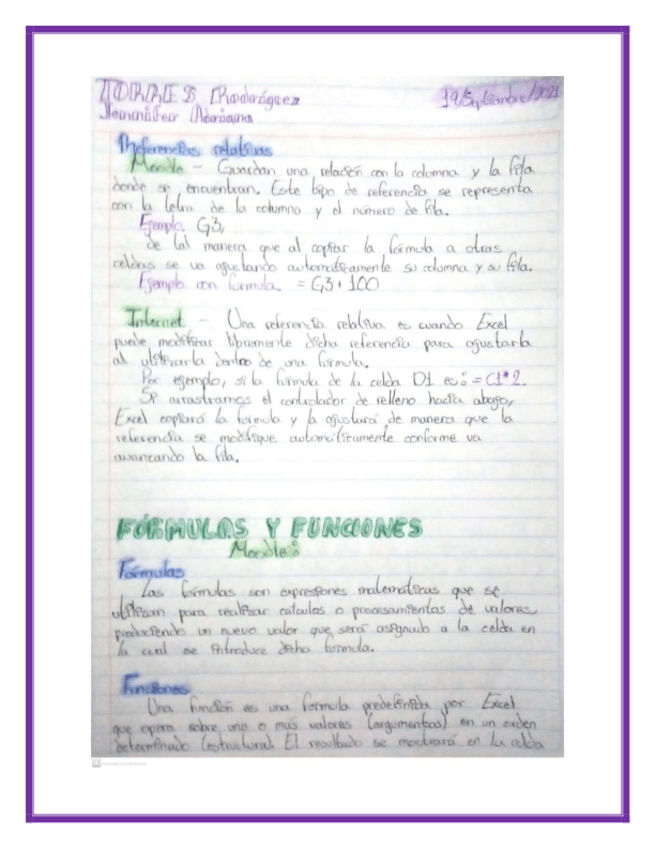 TORRES Rodríguez 19/Septiembre/2021
Jennifer Adriana
Referencias relativas
Moodle - Guardan una relación con la columna y la fila
donde se encuentran. Este tipo de referencia se representa
con la letra de la columna y el número de fila.
Ejemplo: G3,
de tal manera que al copiar la fórmula a otras
celdas se va ajustando automáticamente su columna y su fila.
Ejemplo con formula. = G3+100
Internet - Una referencia relativa es cuando Excel
puede modificar libremente dicha referencia para ajustarla
al utilizarla dentro de una fórmula.
Por ejemplo, si la fórmula de la celda D1 es: =C1*2.
Si arrastramos el controlador de relleno hacia abajo,
Excel copiará la formula y la ajustará de manera que la
referencia se modifique automáticamente conforme va
avanzando la fila.
FÓRMULAS Y FUNCIONES
Moodle:
Fórmulas
Las fórmulas son expresiones matemáticas que se
utilizan para realizar calculos o procesamientos de valores,
produciendo un nuevo valor que será asignado a la celda en
la cual se introduce dicha formula.
Funciones
Una función es una formula predefinida por Excel
que opera sobre uno o más valores (argumentos) en un orden
determinado (estructura). El resultado se mostrará en la celda